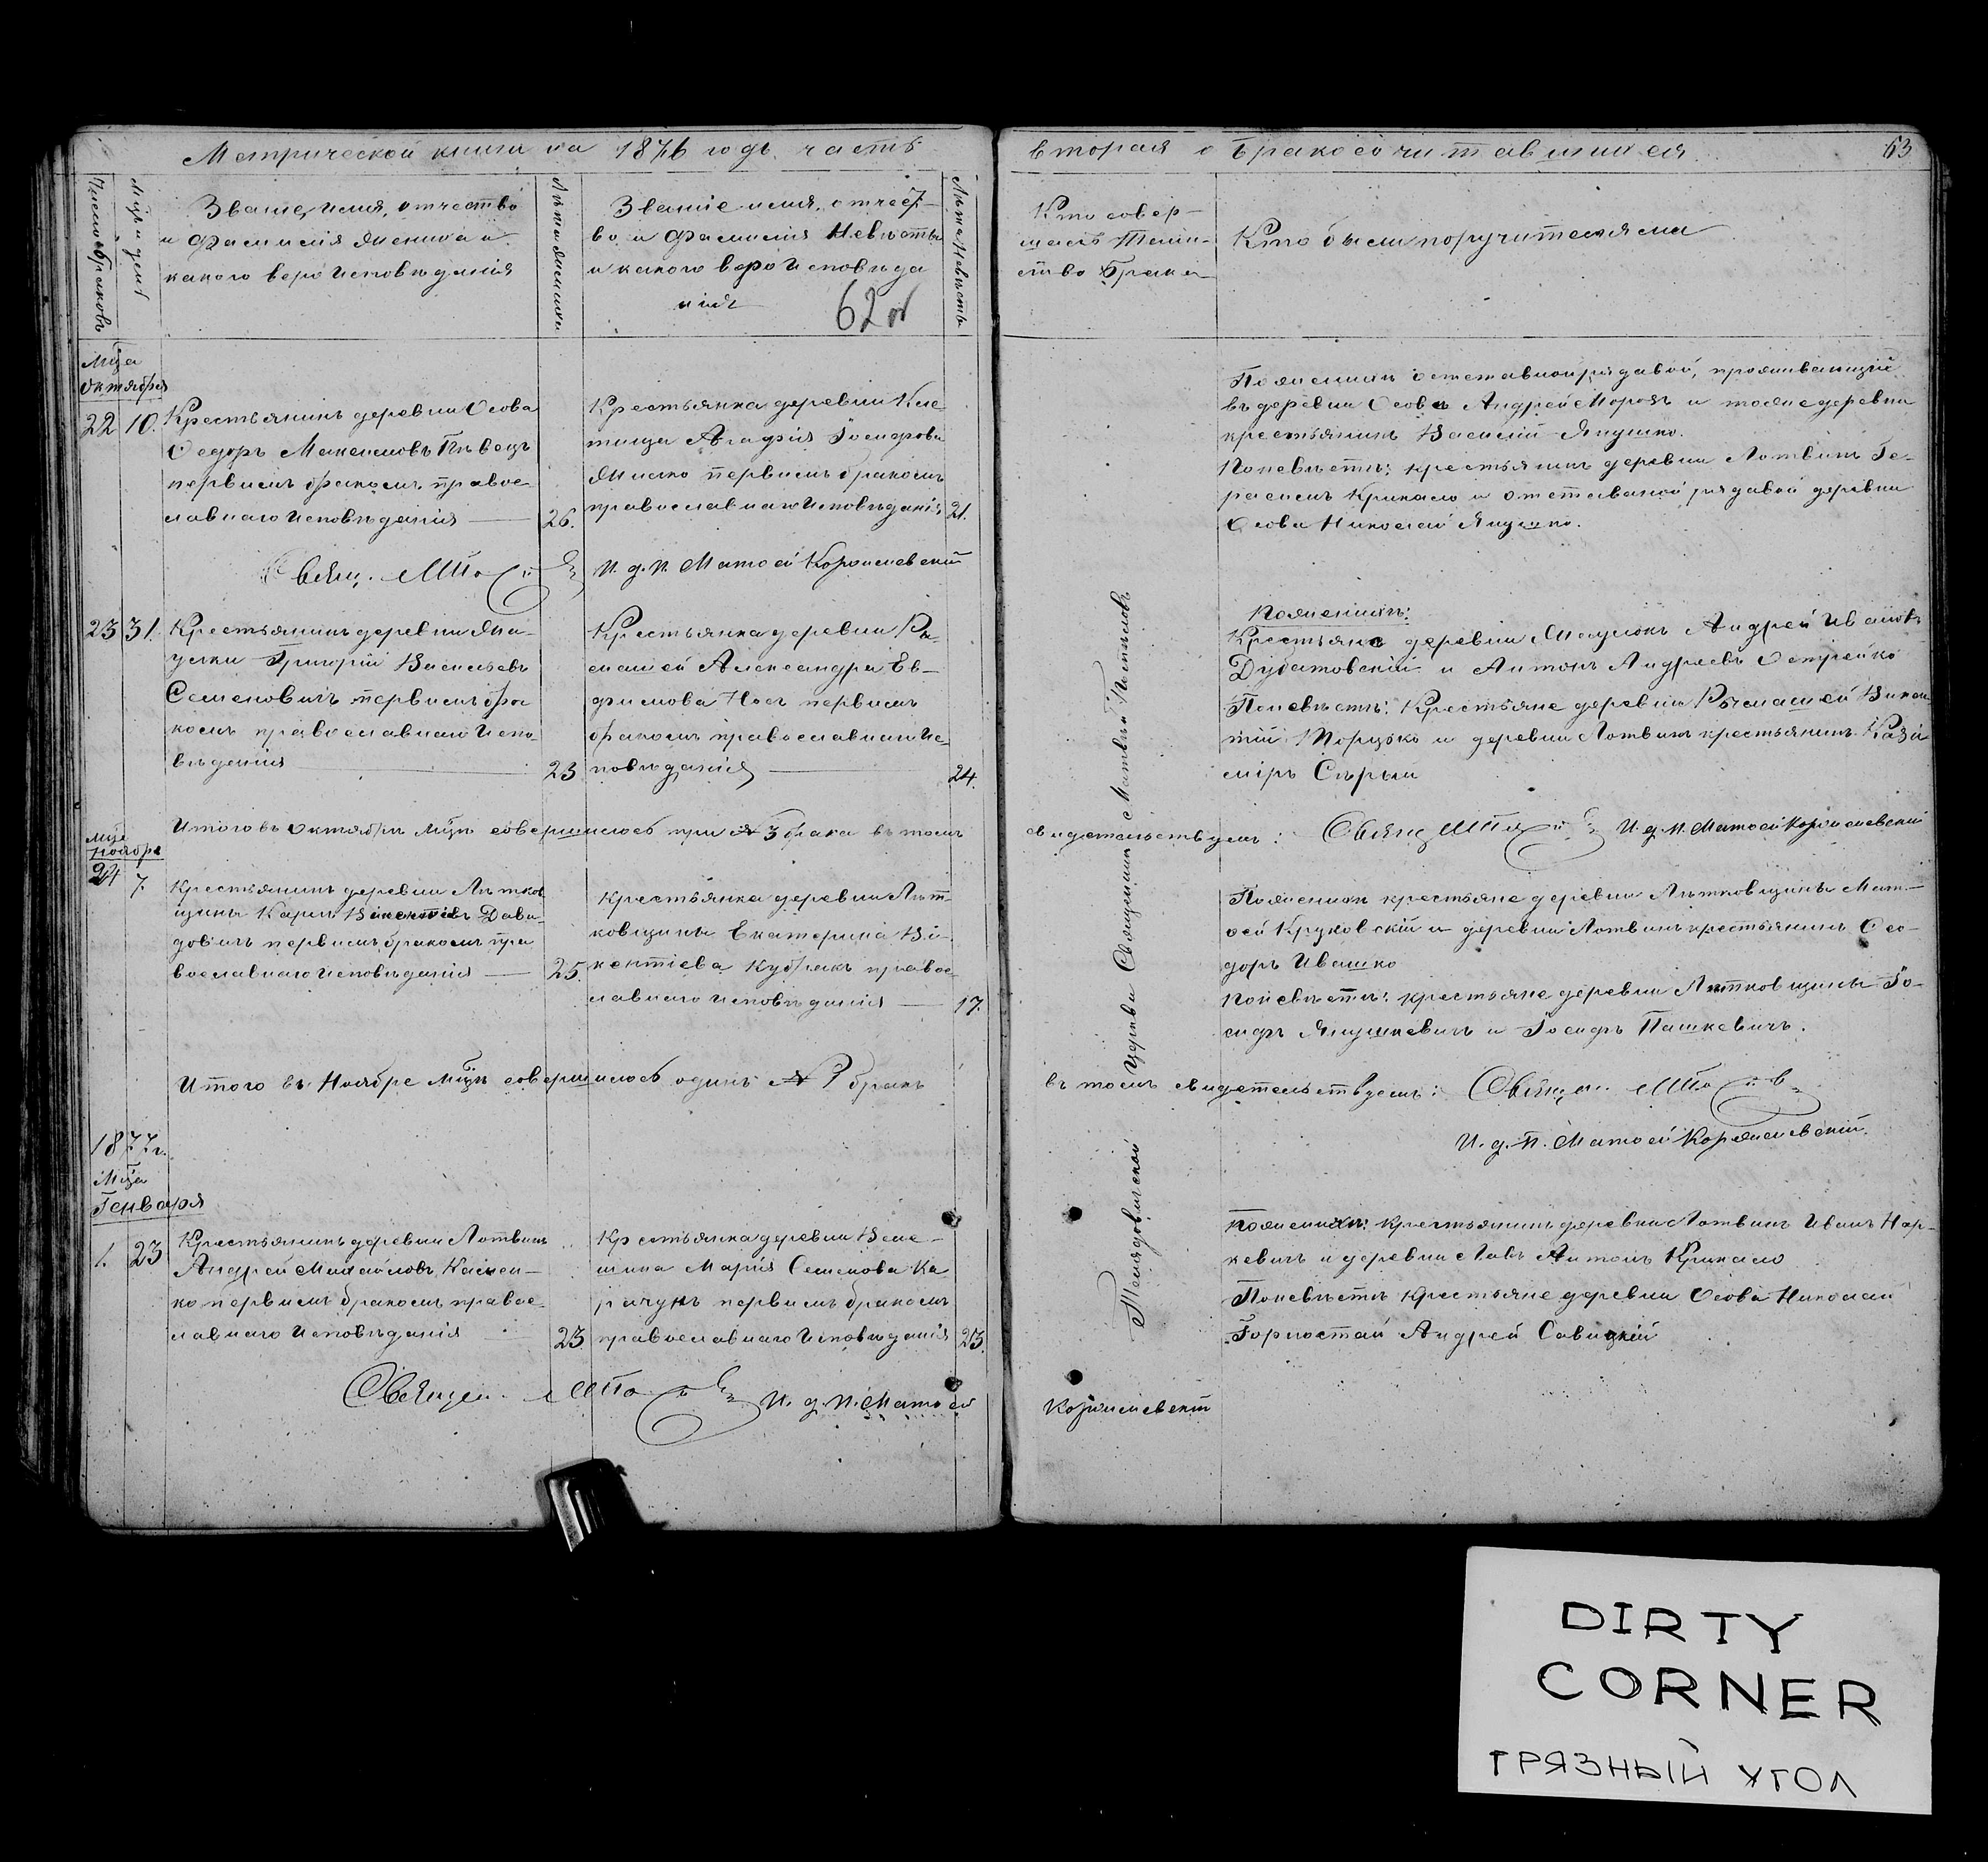 Метрической книги на 1876 годъ часть
вторая о бракосочитавшихся
63
Число браковъ
Мѣсяцъ и день
Званіе, имя, отчество
и фамилія жениха и
какого вѣроисповѣданія
Лѣта жениха
Званіе имя, отчест-
во и фамилія невѣсты
и какого вѣроисповѣда
нія
62 об
Лѣта невѣсты
Кто совер-
шалъ таин-
ство брака
Кто были поручителями
Мца
Октября
22 10. Крестьянинъ деревни Осова
Ѳедоръ Максимовъ Пѣвецъ
первымъ бракомъ, право-
славнаго исповѣданія 26.
Крестьянка деревни Кле-
тища Агафія Іосифова
первымъ бракомъ
православнаго исповѣданія 21.
Поженихѣ отставной рядовой, проживающій
въ деревни Осова Андрей Морозъ и тояже деревни
крестьянинъ Василій Янушко.
Поневѣстѣ: крестьянинъ деревни Лотвинъ Ге-
расимъ Крикало и отставной рядовой деревни
Осова Николай Янушко.
Свящ. И. д. п. Матѳей
23 31. Крестьянинъ деревни
Григорій Васильевъ
Семеновичъ первымъ бра
комъ православнаго испо-
вѣданія 23
Крестьянка деревни
Александра Ев-
фимова Носъ первымъ
бракомъ православнаго ис-
повѣданія 24.
Поженихѣ:
Крестьяне деревни Андрей Ивановъ
и Антонъ Андреевъ Острейко
Поневѣстѣ: Крестьяне деревни Викен
тій и деревни Лотвинъ крестьянинъ Кази
міръ Сѣрый
Итого въ Октябрѣ мцѣ совершилось три № 3 брака въ томъ
свидѣтельствуемъ: Священ И. д. п. Матѳей
Мца
Ноября
24 7. Крестьянинъ деревни Лѣтков
щины Карлъ Викентіевъ Дави-
довичъ первымъ бракомъ пра
вославнаго исповѣданія 25.
Крестьянка деревни Лѣт-
ковщины Екатерина Ви-
кентіева Кубракъ право-
славнаго исповѣданія 17.
Поженихѣ крестьяне деревни Лѣтковщины Мат-
ѳей Круковскій и деревни Лотвинъ крестьянинъ Ѳео-
доръ Ивашко
Поневѣстѣ: крестьяне деревни Лѣтковщины Іо-
сифъ Янушкевичъ и Іосифъ Пашкевичъ.
Итого въ Ноябре мцѣ совершилось одинъ № 1 бракъ
въ томъ свидѣтельствуемъ: Священ.
И. д. п. Матѳей
1877 г.
Мца
Генваря
1. 23 Крестьянинъ деревни Лотвинъ
Андрей Михайловъ
первымъ бракомъ право-
славнаго исповѣданія 23
Крестьянка деревни Веле-
шина Марія Семенова Ка
рачунъ первымъ бракомъ
православнаго исповѣданія 23.
Поженихѣ: крестьянинъ деревни Лотвинъ Иванъ Нар-
кевичъ и деревни Лавъ Антонъ Крикало
Поневѣстѣ крестьяне деревни Осова Николай
Горностай Андрей Савицкій
Священ. И. д. п. Матѳей
церкви Священникъ Матвѣй
DIRTY
CORNER
ГРЯЗНЫЙ УГОЛ